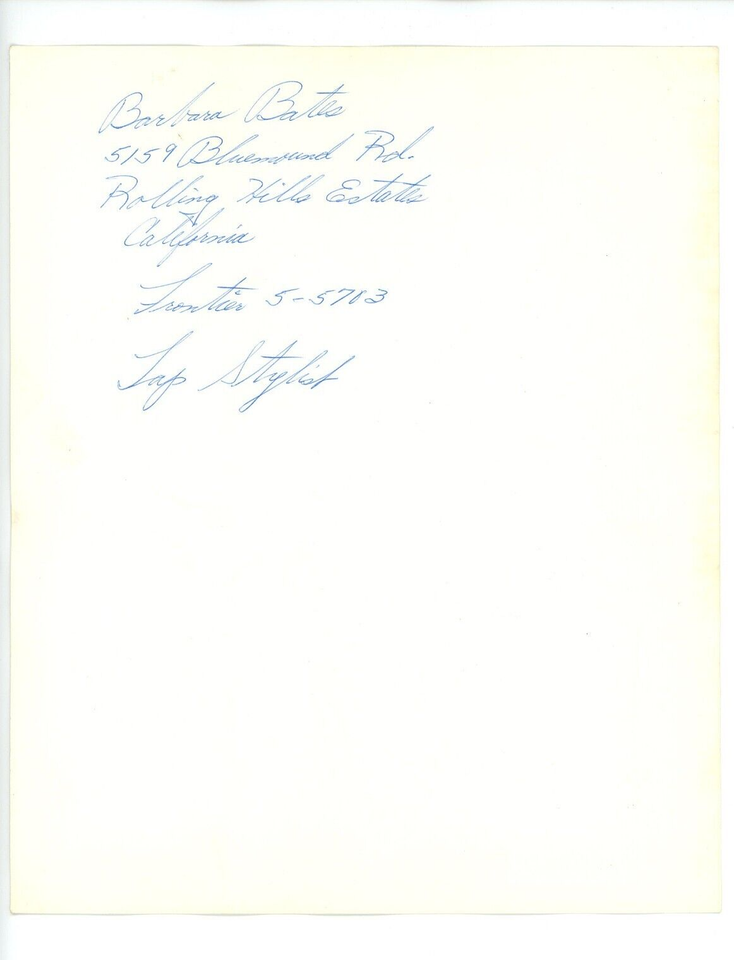 Barbara Bates
5159 Bluemound Rd.
Rolling Hills Estates
California
Frontier 5-5783
Tap Stylist